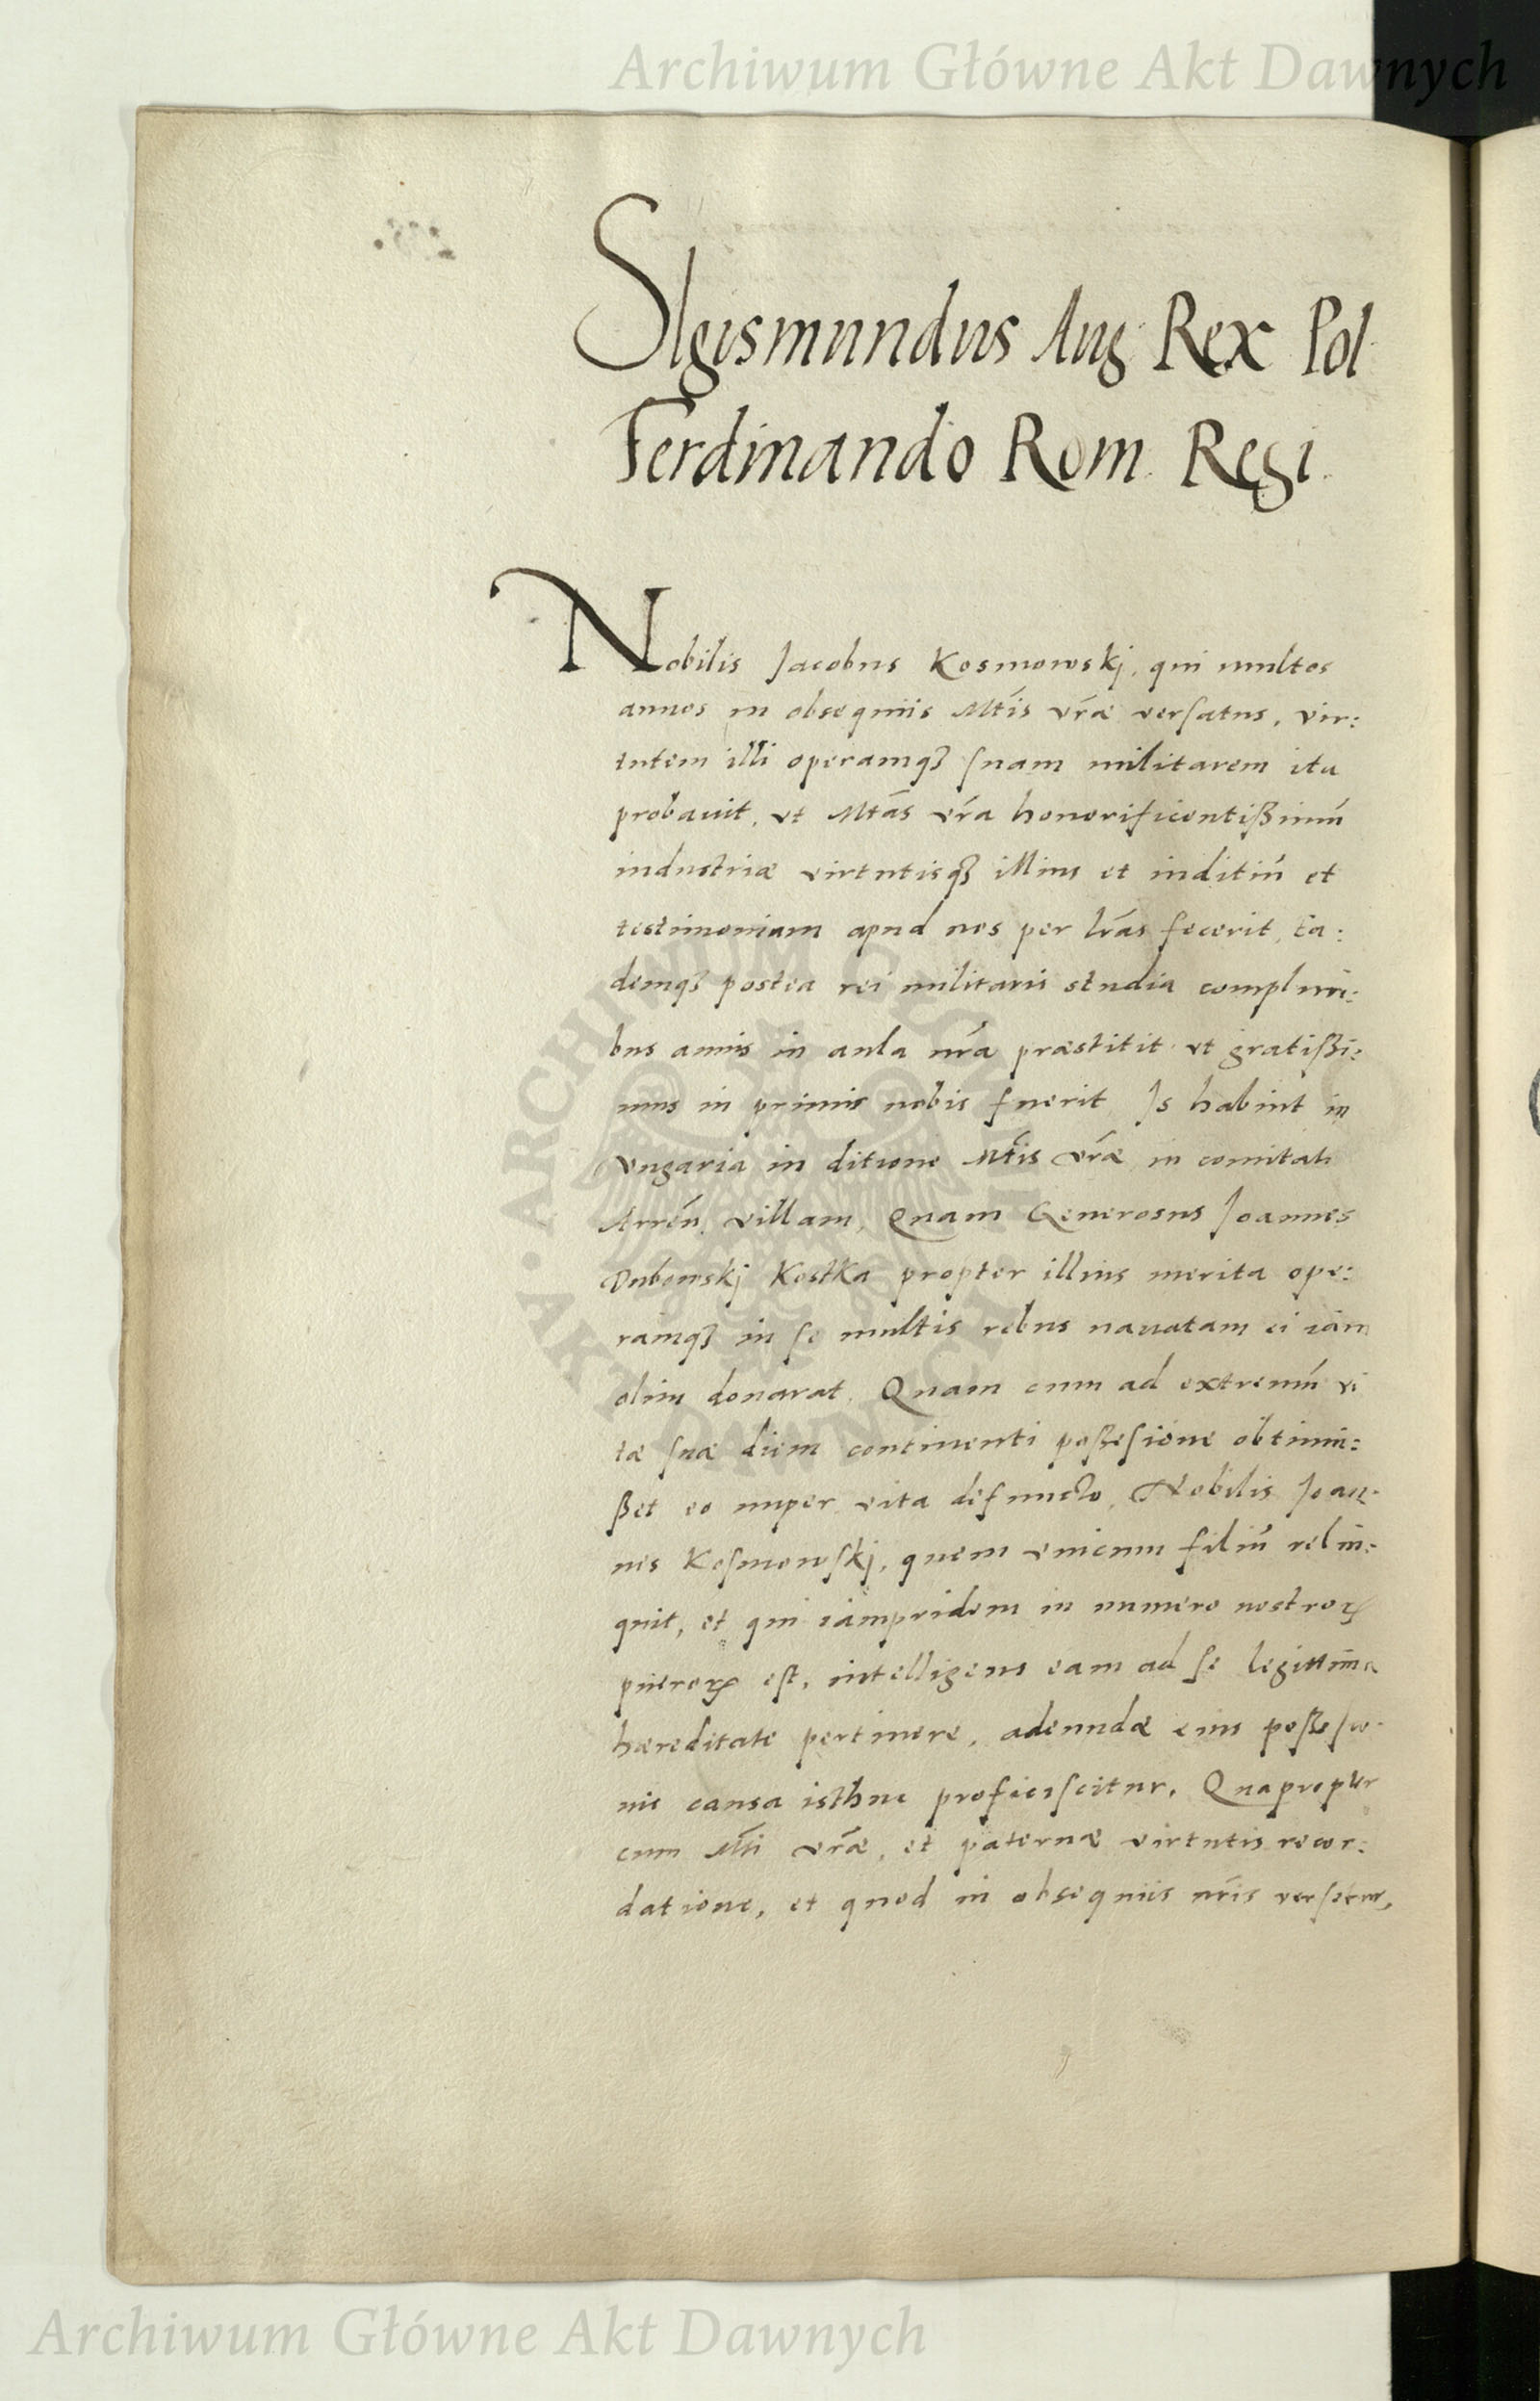 Archiwum Główne Akt Dawnych
SIgismundus Aug Rex Pol
Ferdinando Rom. Regi.
Nobilis Jacobus Kosmowskj, qui multos
annos in obsequiis Mtĩs vr̃æ versatus, vir:
tutem illi operamqꝫ suam militarem ita
probauit, vt Mtãs vr̃a honorificentißimũ
industriæ virtutisqꝫ illius et inditiũ et
testimonium apud nos per lr̃as fecerit, Ea:
demqꝫ postea rei militaris studia compluri:
bus annis in aula nr̃a præstitit vt gratißi:
mus in primis nobis fuerit Is habuit in
Vngaria in ditione Mtĩs vr̃æ in comitatu
villam, Quam Generosus Joannes
Dubowskj Kostka propter illius merita ope:
ramqꝫ in se multis rebus nauatam ei iam
olim donarat. Quam cum ad extremũ vi
tæ suæ diem continenti poßesione obtinui:
ßet eo nuper vita defuncto, Nobilis Joan:
nes Kosmowskj, quem vnicum filiũ relin:
quit, et qui iampridem in numero nostroꝝ
pueroꝝ est, intelligens eam ad se legittima
hæreditate pertinere, adeundæ eius poßesio:
nis causa isthuc proficiscitur. Quapropter
cum Mtĩ vr̃æ, et paternæ virtutis recor:
datione, et quod in obsequiis nr̃is versetur,
ARCHIWUM GŁÓWNE AKT DAWNYCH
Archiwum Główne Akt Dawnych